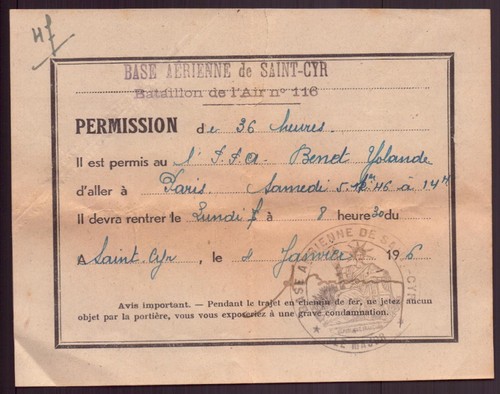 Hf
BASE AÉRIENNE de SAINT-CYR
Bataillon de l'Air n° 116
PERMISSION de 36 heures.
Il est permis au Benet Yolande
d'aller à Paris. Samedi 5 46 à 14 H
Il devra rentrer le Lundi à 8 heure 30 du
A Saint Cyr, le Janvier 196
Avis important. — Pendant le trajet en chemin de fer, ne jetez aucun
objet par la portière, vous vous exposeriez à une grave condamnation.
BASE AÉRIENNE DE SAINT-CYR
LE MAJOR